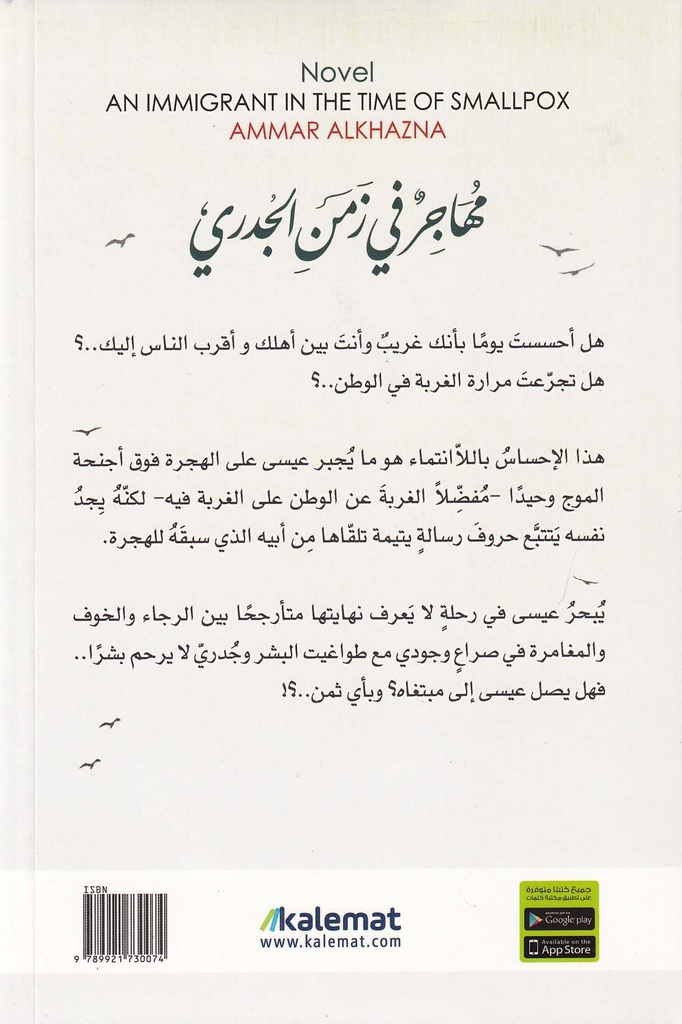 Novel
AN IMMIGRANT IN THE TIME OF SMALLPOX
AMMAR ALKHAZNA
مُهَاجِرٌ في زَمَنِ الجُدري
هل أحسستَ يومًا بأنك غريبٌ وأنتَ بين أهلك و أقرب الناس إليك..؟
هل تجرّعتَ مرارة الغربة في الوطن..؟
هذا الإحساسُ باللاّانتماء هو ما يُجبر عيسى على الهجرة فوق أجنحة
الموج وحيدًا -مُفضِّلاً الغربةَ عن الوطن على الغربة فيه- لكنّهُ يجدُ
نفسه يَتتبَّع حروفَ رسالةٍ يتيمة تلقّاها مِن أبيه الذي سبقَهُ للهجرة.
يُبحرُ عيسى في رحلةٍ لا يَعرف نهايتها متأرجحًا بين الرجاء والخوف
والمغامرة في صراعٍ وجودي مع طواغيت البشر وجُدريّ لا يرحم بشرًا..
فهل يصل عيسى إلى مبتغاه؟ وبأي ثمن..؟!
ISBN
9 789921 730074
kalemat
www.kalemat.com
جميع كتبنا متوفرة
على تطبيق مكتبة كلمات
ANDROID APP ON
Google play
Available on the
App Store